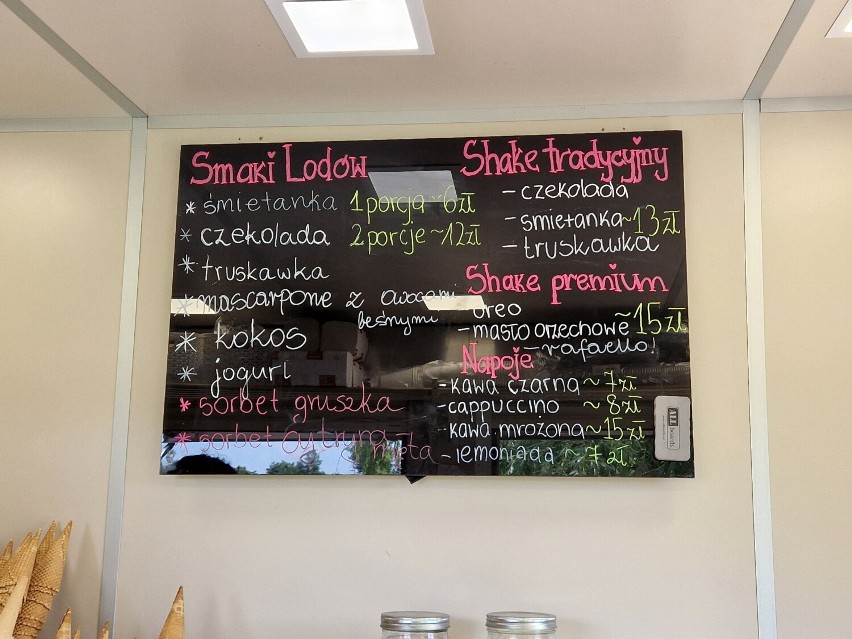 Smaki Lodów
* śmietanka 1 porcja ~6zł
* czekolada 2 porcje ~12zł
* truskawka
* mascarpone z owocami
leśnymi
* kokos
* jogurt
* sorbet gruszka
* sorbet cytryna
mięta
Shake tradycyjny
- czekolada
- śmietanka ~13zł
- truskawka
Shake premium
- oreo
- masło orzechowe ~15zł
- rafaello!
Napoje
- kawa czarna ~ 7zł
- cappuccino ~ 8zł
- kawa mrożona ~15zł
- lemoniada ~ 7zł
ALL
boards